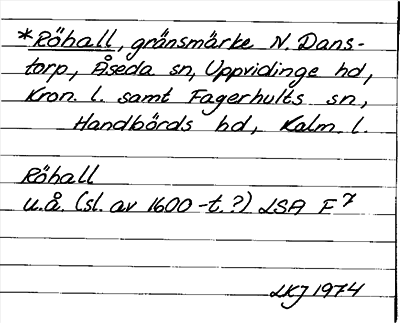 *Röhall, gränsmärke N. Dans-
torp, Åseda sn, Uppvidinge hd,
Kron. l. samt Fagerhults sn,
Handbörds hd, Kalm. l.
Röhall
u.å. (sl. av 1600-t.?) LSA F 7
LKJ 1974